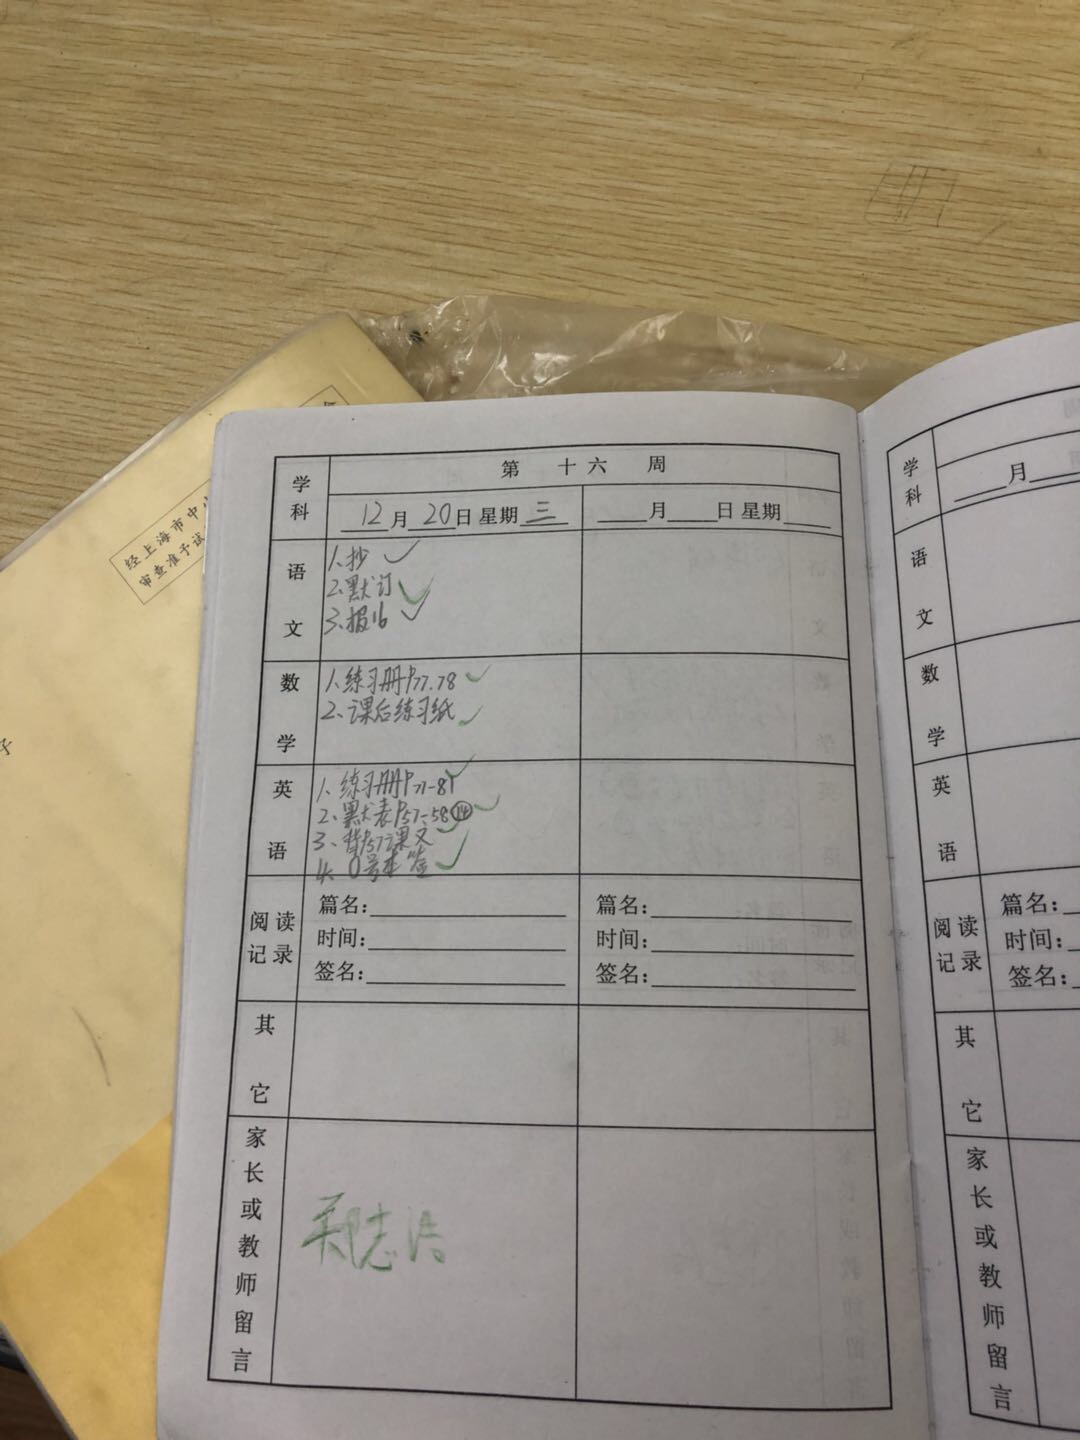 经上海市中小
审查准予试
学科
第 十六 周
12月20日 星期三
___月___日 星期___
语文
1.抄
2.默订
3.报16
数学
1.练习册P77.78
2.课后练习纸
英语
1.练习册P71-81
2.默表P57-58⑭
3.背P57课文
4.0号本 签
阅读记录
篇名:
时间:
签名:
篇名:
时间:
签名:
其它
家长或教师留言
学科
___月
语文
数学
英语
阅读记录
篇名:
时间:
签名:
其它
家长或教师留言